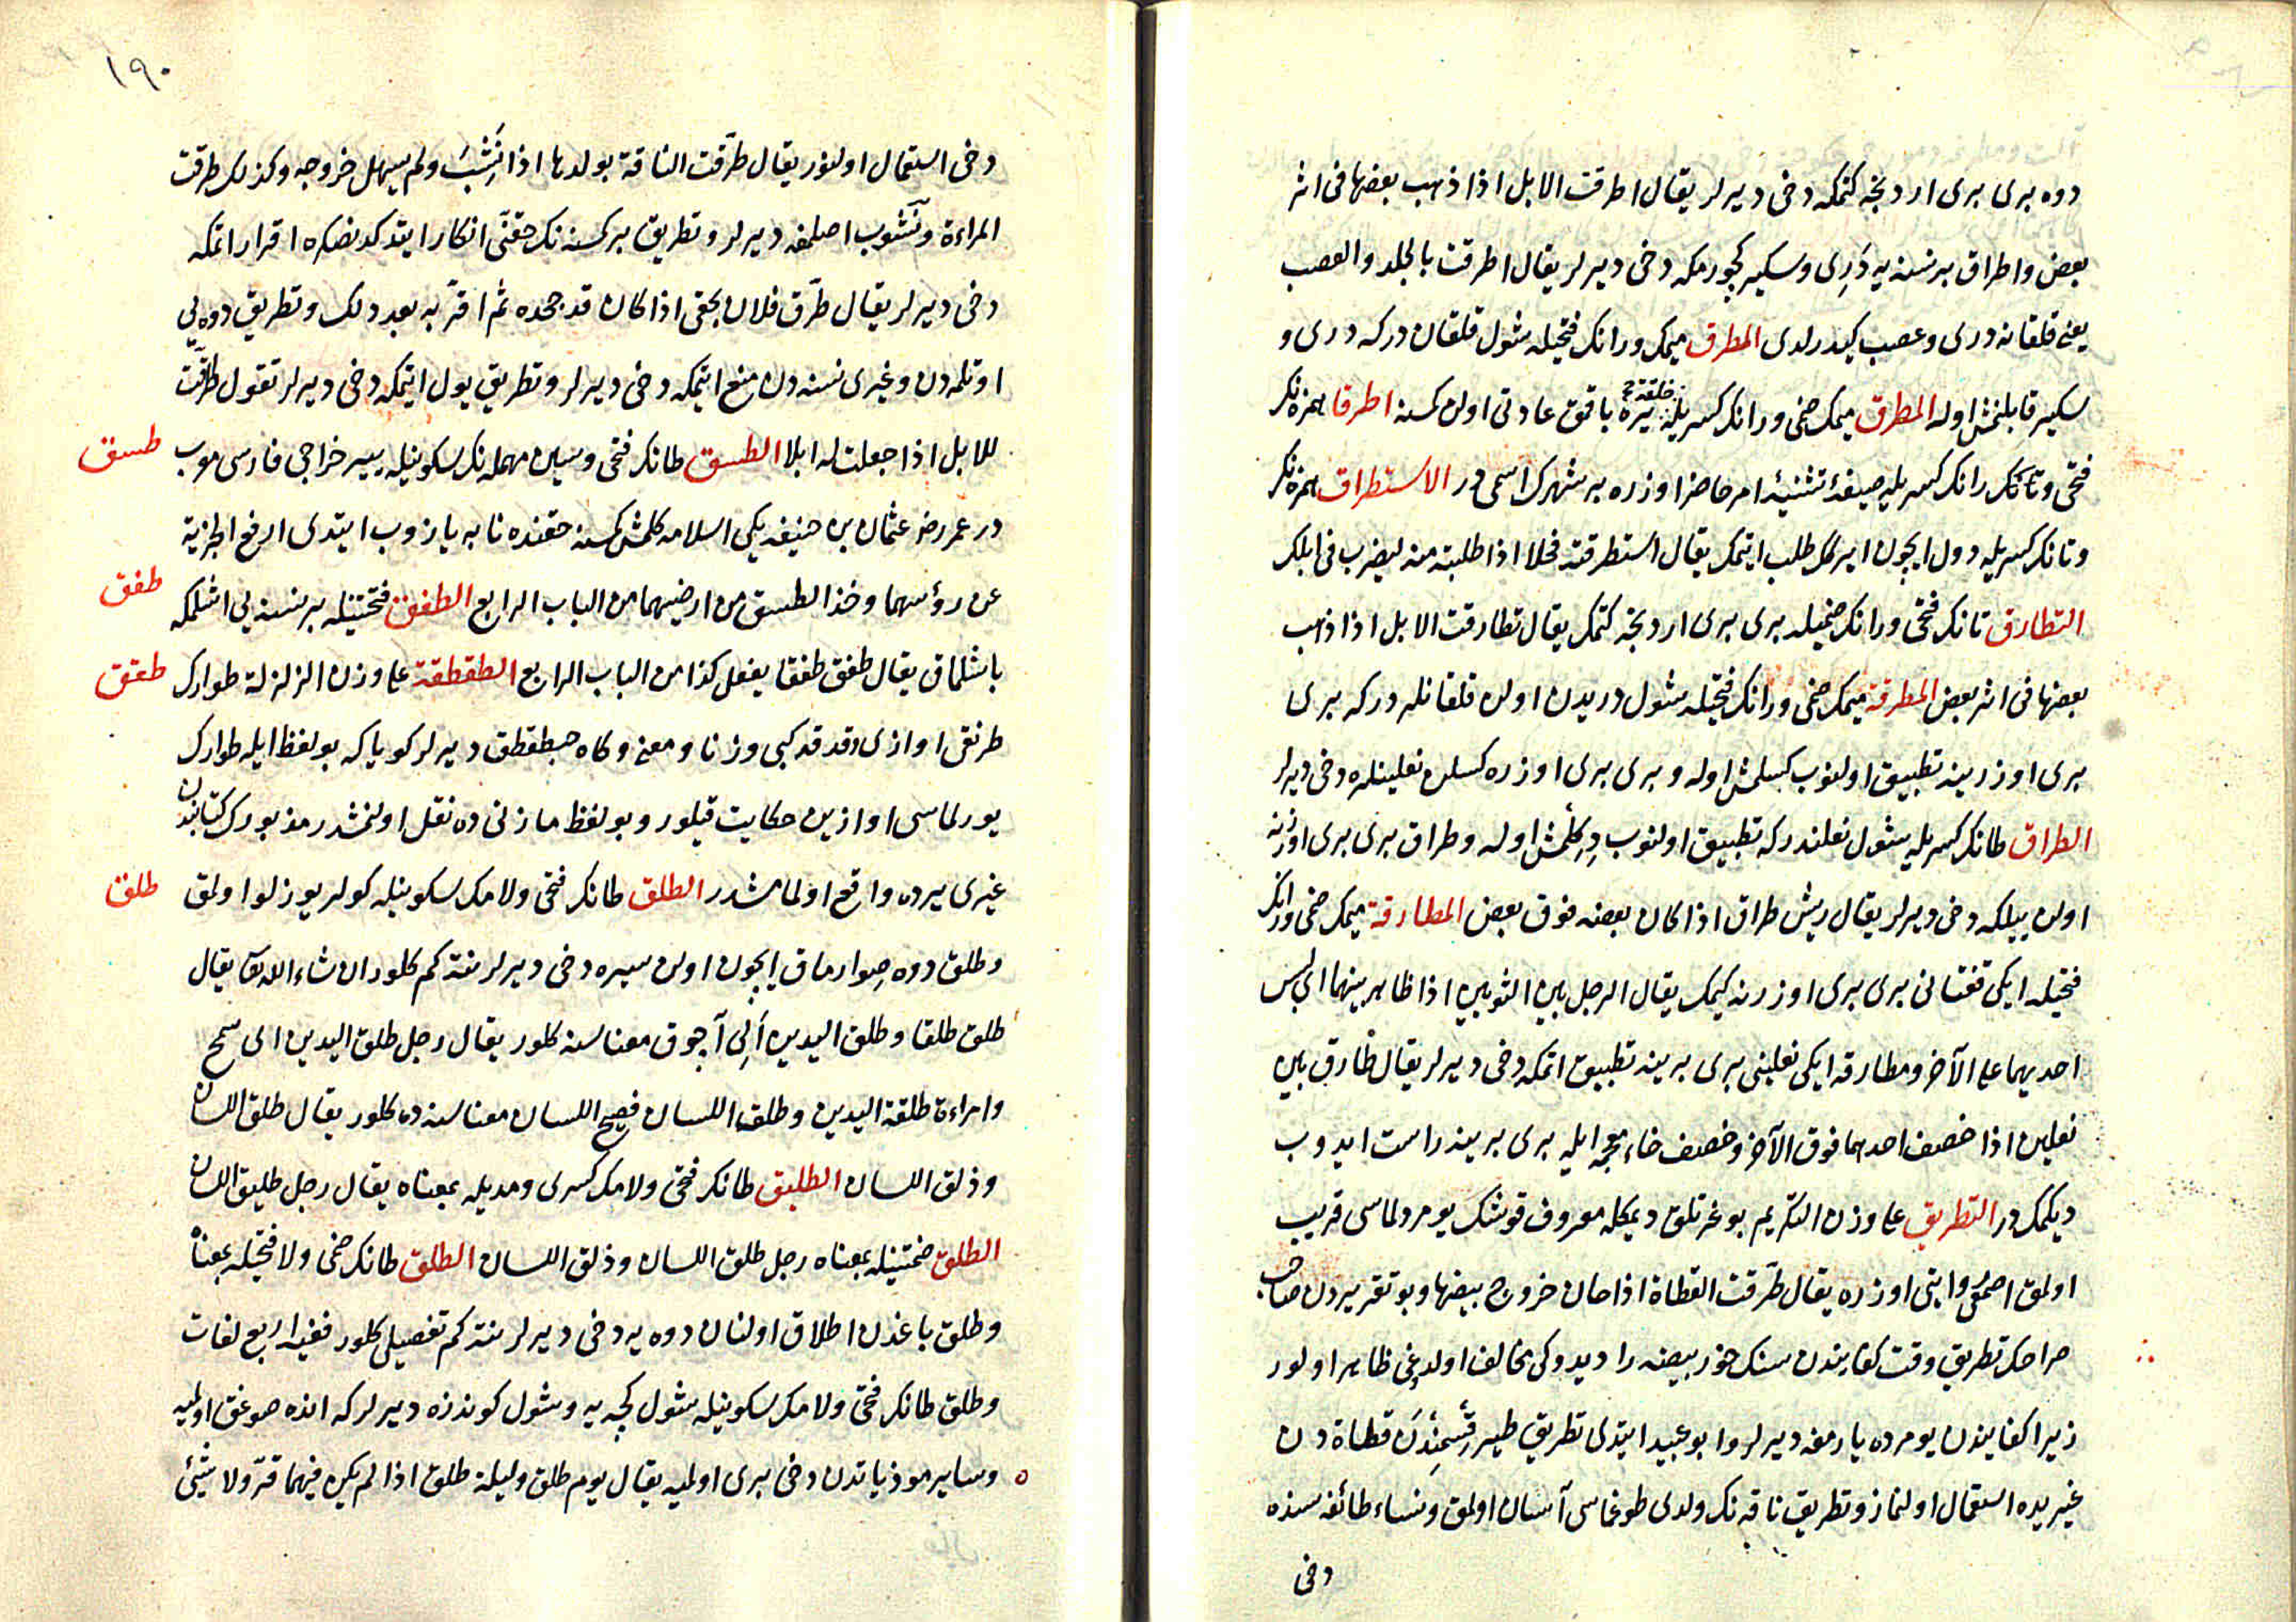 دوه برى برى اردنجه كتمكه دخى ديرلر يقال اطرقت الابل اذا ذهب بعضها فى اثر
بعض واطراق برنسنه يه دَرِى وسكير كچورمكه دخى ديرلر يقال اطرقت بالجلد والعصب
يعنى قلقانه درى وعصب كيدرلدى المطرق ميمك ورانك فتحيله شول قلقان دركه درى و
سكير قابلنمش اوله المطرق ميمك ضمى ورانك كسريله يره باقمق عادتى اولن كسنه اطرقا همزه نك
خلقته
فتحى وتانك رانك كسريله صيغهٔ تثنيهٔ امر حاضر اوزره بر شهرك اسمى در الاستطراق همزه نك
وتانك كسريله دول ايچون ايركك طلب ايتمك يقال استطرقته فحلا اذا طلبته منه ليضرب فى ابلك
التطارق تانك فتحى ورانك ضميله برى برى اردنجه كتمك يقال تطارقت الابل اذا ذهب
بعضها فى اثر بعض المطرقة ميمك ضمى ورانك فتحيله شول دريدن اولن قلقانله دركه برى
برى اوزرينه تطبيق اولنوب كسلمش اوله وبرى برى اوزره كسلن نعلينلره دخى ديرلر
الطراق طانك كسريله شول نعلندركه تطبيق اولنوب دِكلمش اوله وطراق برى برى اوزرنه
اولن ييلكه دخى ديرلر يقال ريش طراق اذا كان بعضه فوق بعض المطارقة ميمك ضمى ورانك
فتحيله ايكى قفتانى برى برى اوزرنه كيمك يقال الرجل بين الثوبين اذا ظاهر بينهما اى لبس
احديهما على الآخر ومطارقه ايكى نعلينى برى برينه تطبيق اتمكه دخى ديرلر يقال طارق بين
نعلين اذا خصف احدهما فوق الآخر وخصف خاء معجمه ايله برى برينه راست ايدوب
ديكمك در التطريق على وزن التكريم بوغرتلق ديمكله معروف قوشك يومردلماسى قريب
اولمق اصمعى روايتى اوزره يقال طرّقت القطاة اذا حان خروج بيضها وبو تقريردن صاحب
صراحك تطريق وقت كفايندن سنك خور بيضه را ديدوكى مخالف اولدوغى ظاهر اولور
زيرا كفايندن يومرده يارمغه ديرلر وابو عبيد ايتدى تطريق طير قسمندن قطاة دن
غيريده استعمال اولنماز وتطريق ناقه نك ولدى طوغماسى آسان اولمق ونساء طائفه سنده
دخى
١٩٠
دخى استعمال اولنور يقال طرّقت الناقة بولدها اذا نَشِبَ ولم يسهل خروجه وكذلك طرقت
المراءة ونشوب اصلمغه ديرلر وتطريق بر كسنه نك حقنى انكار ايتدكدنصكره اقرار اتمكه
دخى ديرلر يقال طرّق فلان بحقى اذا كان قد جحده ثم اقرّ به بعد ذلك وتطريق دوه يى
اوتلمه دن وغيرى نسنه دن منع ايتمكه دخى ديرلر وتطريق يول ايتمكه دخى ديرلر تقول طرّقت
للابل اذا جعلت له ابلا الطسق طانك فتحى وسين مهمله نك سكونيله يير خراجى فارسى معرب
طسق
در عمر رضـ عثمان بن حنيفه يكى اسلامه كلمش كسنه حقنده نامه يازوب ايتدى ارفع الجزية
عن رؤسهما وخذ الطسق من ارضيهما من الباب الرابع الطفق فتحتينله برنسنه يى اشلمكه
طفق
باشلماق يقال طفق طفقا يفعل كذا من الباب الرابع الطقطقة على وزن الزلزلة طوارك
طقق
طرنقى اوازى دقدقه كبى وزنا ومعنى وكاه حبطقطق ديرلر كويا كه بو لفظ ايله طوارك
يورلماسى اوازين حكايت قيلور وبو لفظ مازنى ده نقل اولنمشدر مزبورك كتابندن
غيرى يرده واقع اولمامشدر الطلق طانك فتحى ولامك سكونيله كولر يوزلو اولمق
طلق
وطلق دوه صوارماق ايچون اولن سيره دخى ديرلر نته كم كلور ان شاء الله تعالى يقال
طلق طلقا وطلق اليدين اَلِى آچوق معناسنه كلور يقال رجل طلق اليدين اى سمح
وامراءة طلقة اليدين وطلق اللسان فصيح اللسان معناسنه ده كلور يقال طلق اللسان
وذلق اللسان الطليق طانك فتحى ولامك كسرى ومديله بمعناه يقال رجل طليق اللسان
الطلق ضمتينله بمعناه رجل طلق اللسان وذلق اللسان الطلق طانك ضمى ولا فتحيله بمعناه
وطلق باغدن اطلاق اولنان دوه يه دخى ديرلر نته كم تفصيلى كلور ففيه اربع لغات
وطلق طانك فتحى ولامك سكونيله شول كجه يه وشول كوندزه ديرلر كه انده صوغق اولميه
وساير موذياتدن دخى برى اولميه يقال يوم طلق وليلة طلق اذا لم يكن فيهما قرّ ولا شئ